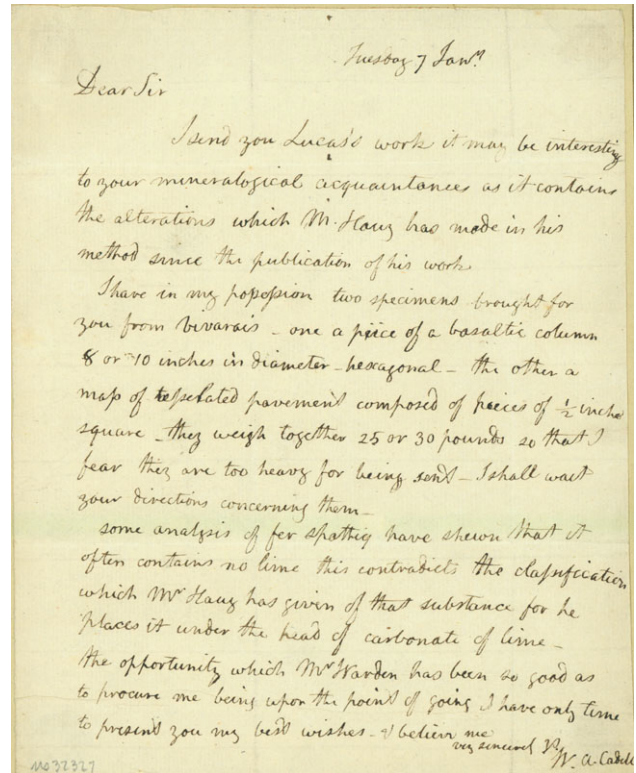 Tuesday 7 Jany.
Dear Sir
I send you Lucas's work it may be interesting
to your mineralogical acquaintances as it contains
the alterations which M. Hauy has made in his
method since the publication of his work
I have in my possession two specimens brought for
you from vivarais - one a piece of a basaltic column
8 or 10 inches in diameter - hexagonal - the other a
mass of tesselated pavement composed of pieces of ½ inche
square - they weigh together 25 or 30 pounds so that I
fear they are too heavy for being sent - I shall wait
your directions concerning them -
some analysis of fer spathiq have shewn that it
often contains no lime this contradicts the classification
which Mr Hauy has given of that substance for he
places it under the head of carbonate of lime -
the opportunity which Mr Warden has been so good as
to procure me being upon the point of going I have only time
to present you my best wishes - & believe me
very sincerely Yr.
W. A. Cadell
no32327